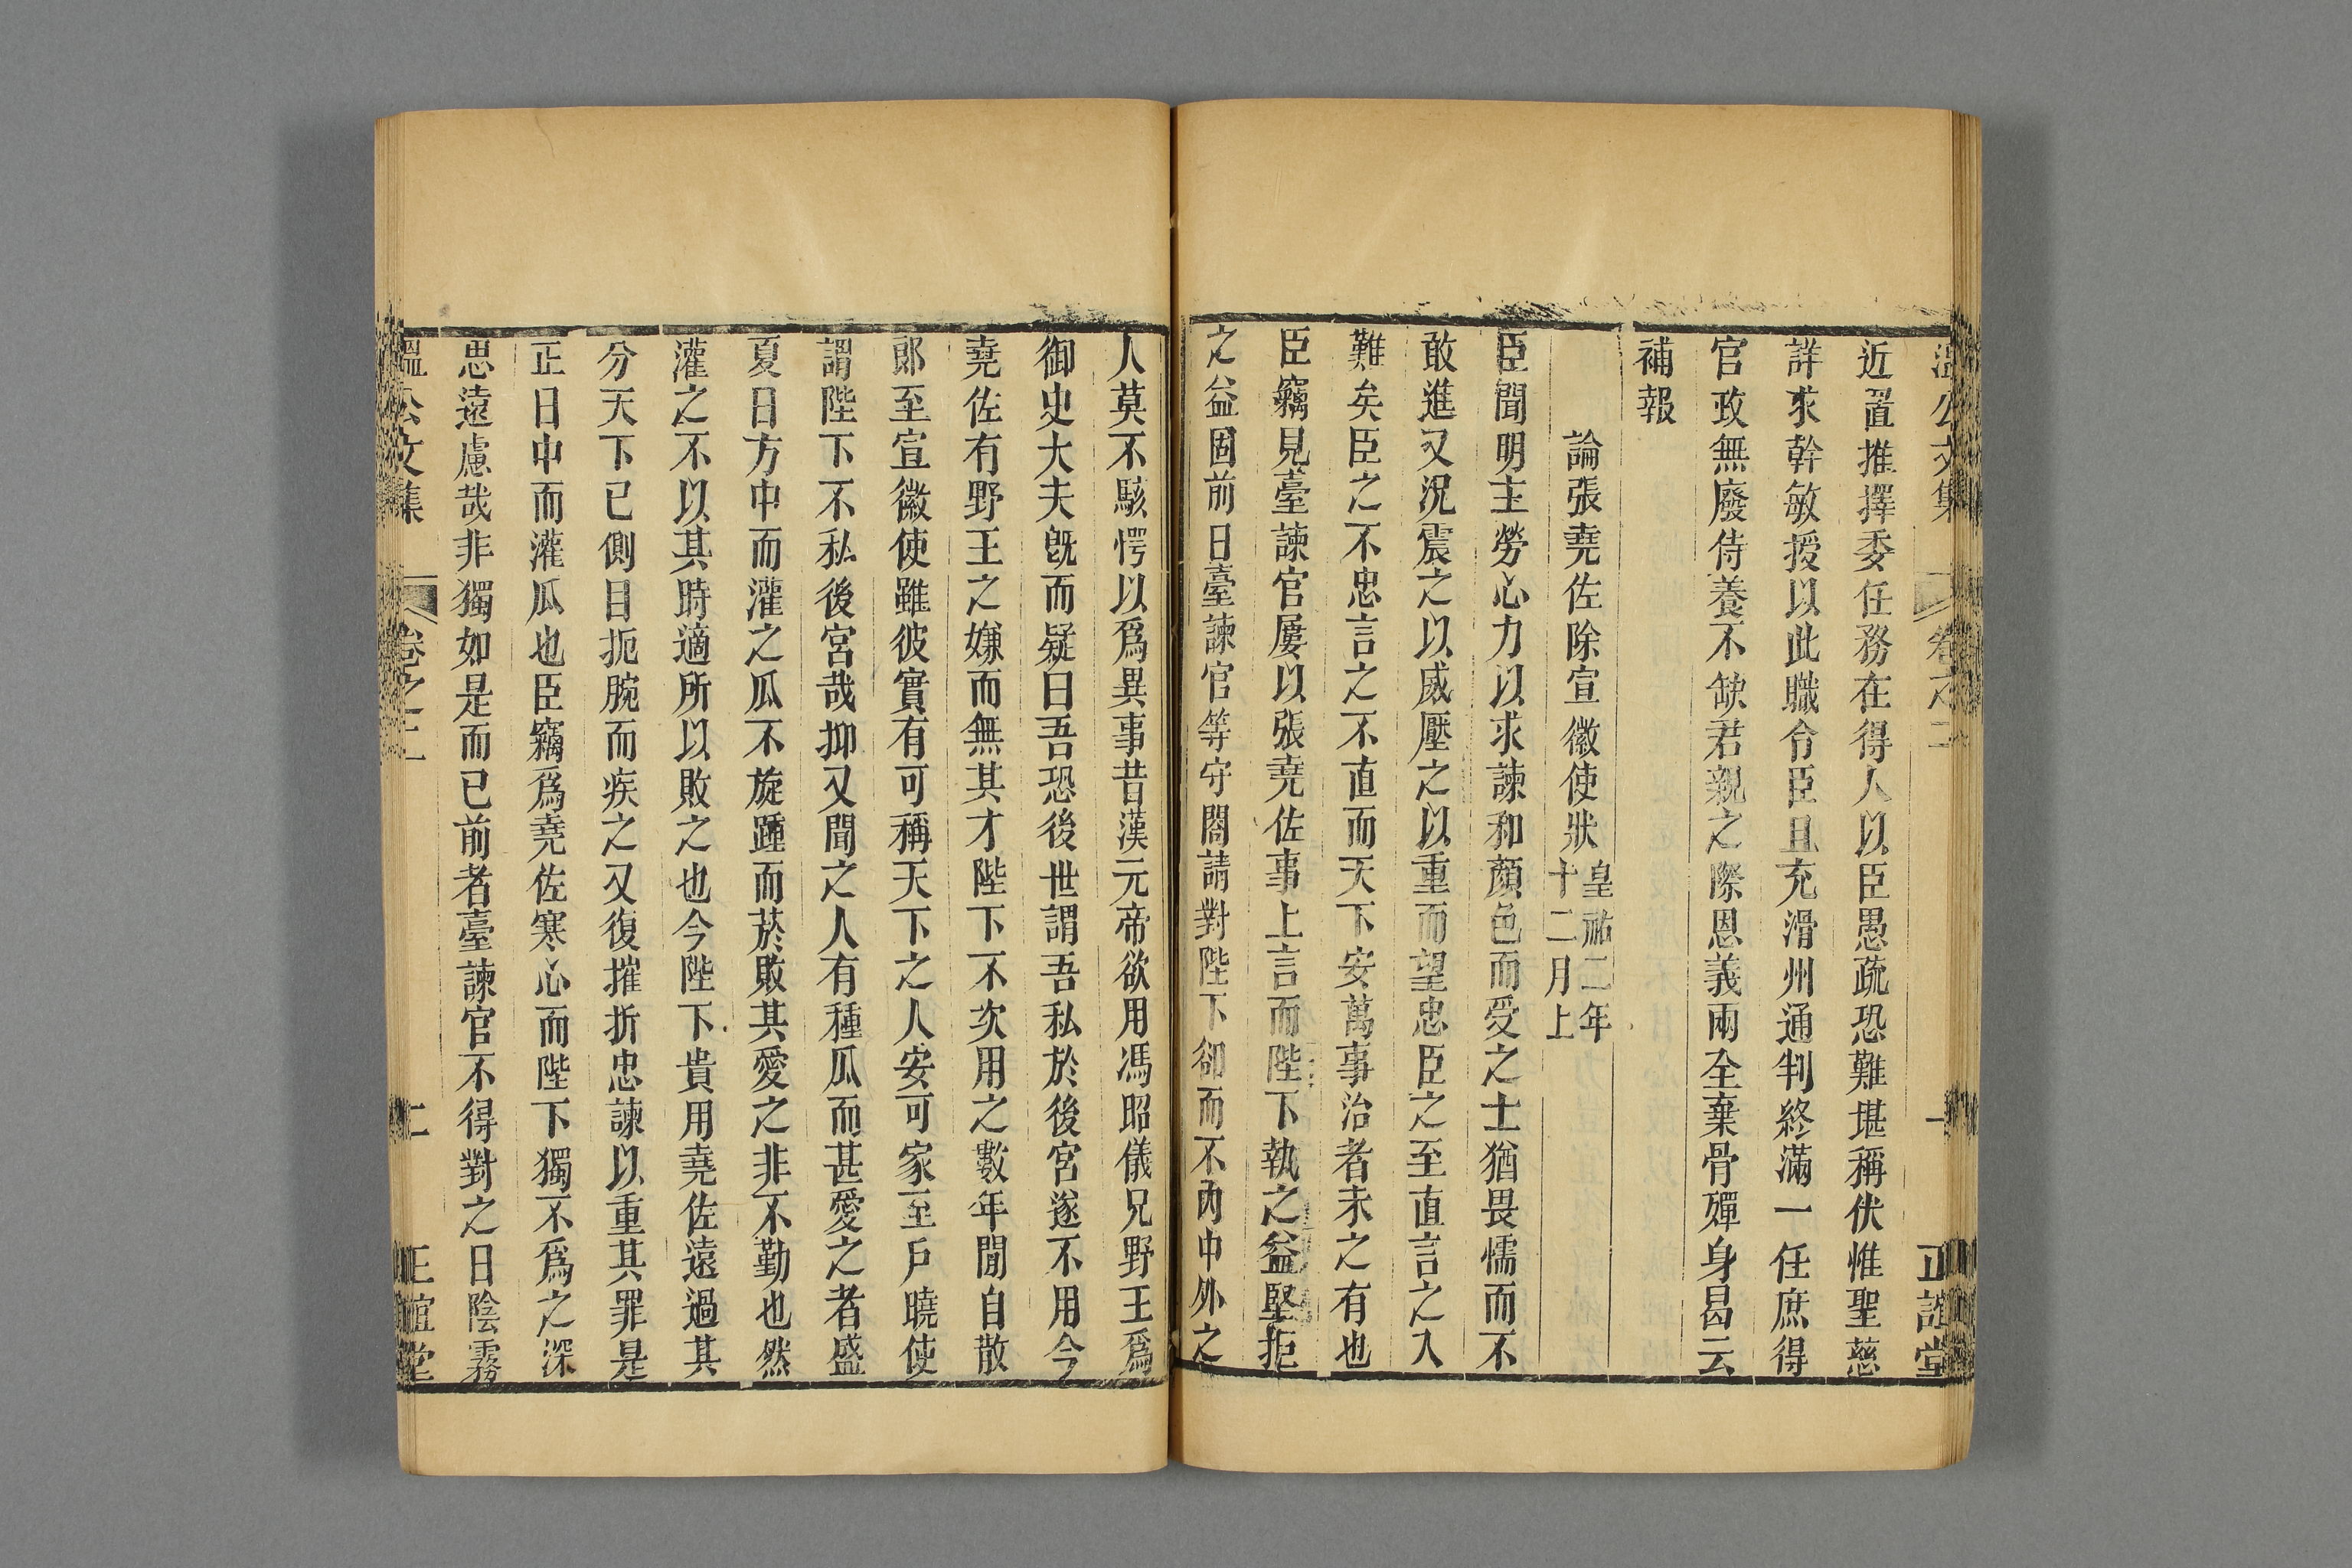 溫公文集 卷之二 一 正誼堂
近置推擇委任務在得人以臣愚疏恐難堪稱伏惟聖慈
詳求幹敏授以此職令臣且充滑州通判終滿一任庶得
官政無廢侍養不缺君親之際恩義兩全棄骨殫身曷云
補報
論張堯佐除宣徽使狀皇祐二年
十二月上
臣聞明主勞心力以求諫和顏色而受之士猶畏懦而不
敢進又況震之以威壓之以重而望忠臣之至直言之入
難矣臣之不忠言之不直而天下安萬事治者未之有也
臣竊見臺諫官屢以張堯佐事上言而陛下執之益堅拒
之益固前日臺諫官等守閤請對陛下卻而不內中外之
人莫不駭愕以爲異事昔漢元帝欲用馮昭儀兄野王爲
御史大夫旣而疑曰吾恐後世謂吾私於後宮遂不用今
堯佐有野王之嫌而無其才陛下不次用之數年間自散
郎至宣徽使雖彼實有可稱天下之人安可家至戶曉使
謂陛下不私後宮哉抑又聞之人有種瓜而甚愛之者盛
夏日方中而灌之瓜不旋踵而菸敗其愛之非不勤也然
灌之不以其時適所以敗之也今陛下貴用堯佐遠過其
分天下已側目扼腕而疾之又復摧折忠諫以重其罪是
正日中而灌瓜也臣竊爲堯佐寒心而陛下獨不爲之深
思遠慮哉非獨如是而已前者臺諫官不得對之日陰霧
溫公文集 卷之二 二 正誼堂